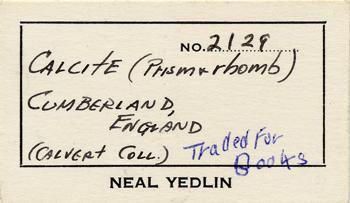 NO. 2129
CALCITE (PRISM & rhomb)
CUMBERLAND,
ENGLAND
(CALVERT COLL.)
Traded for
Books
NEAL YEDLIN